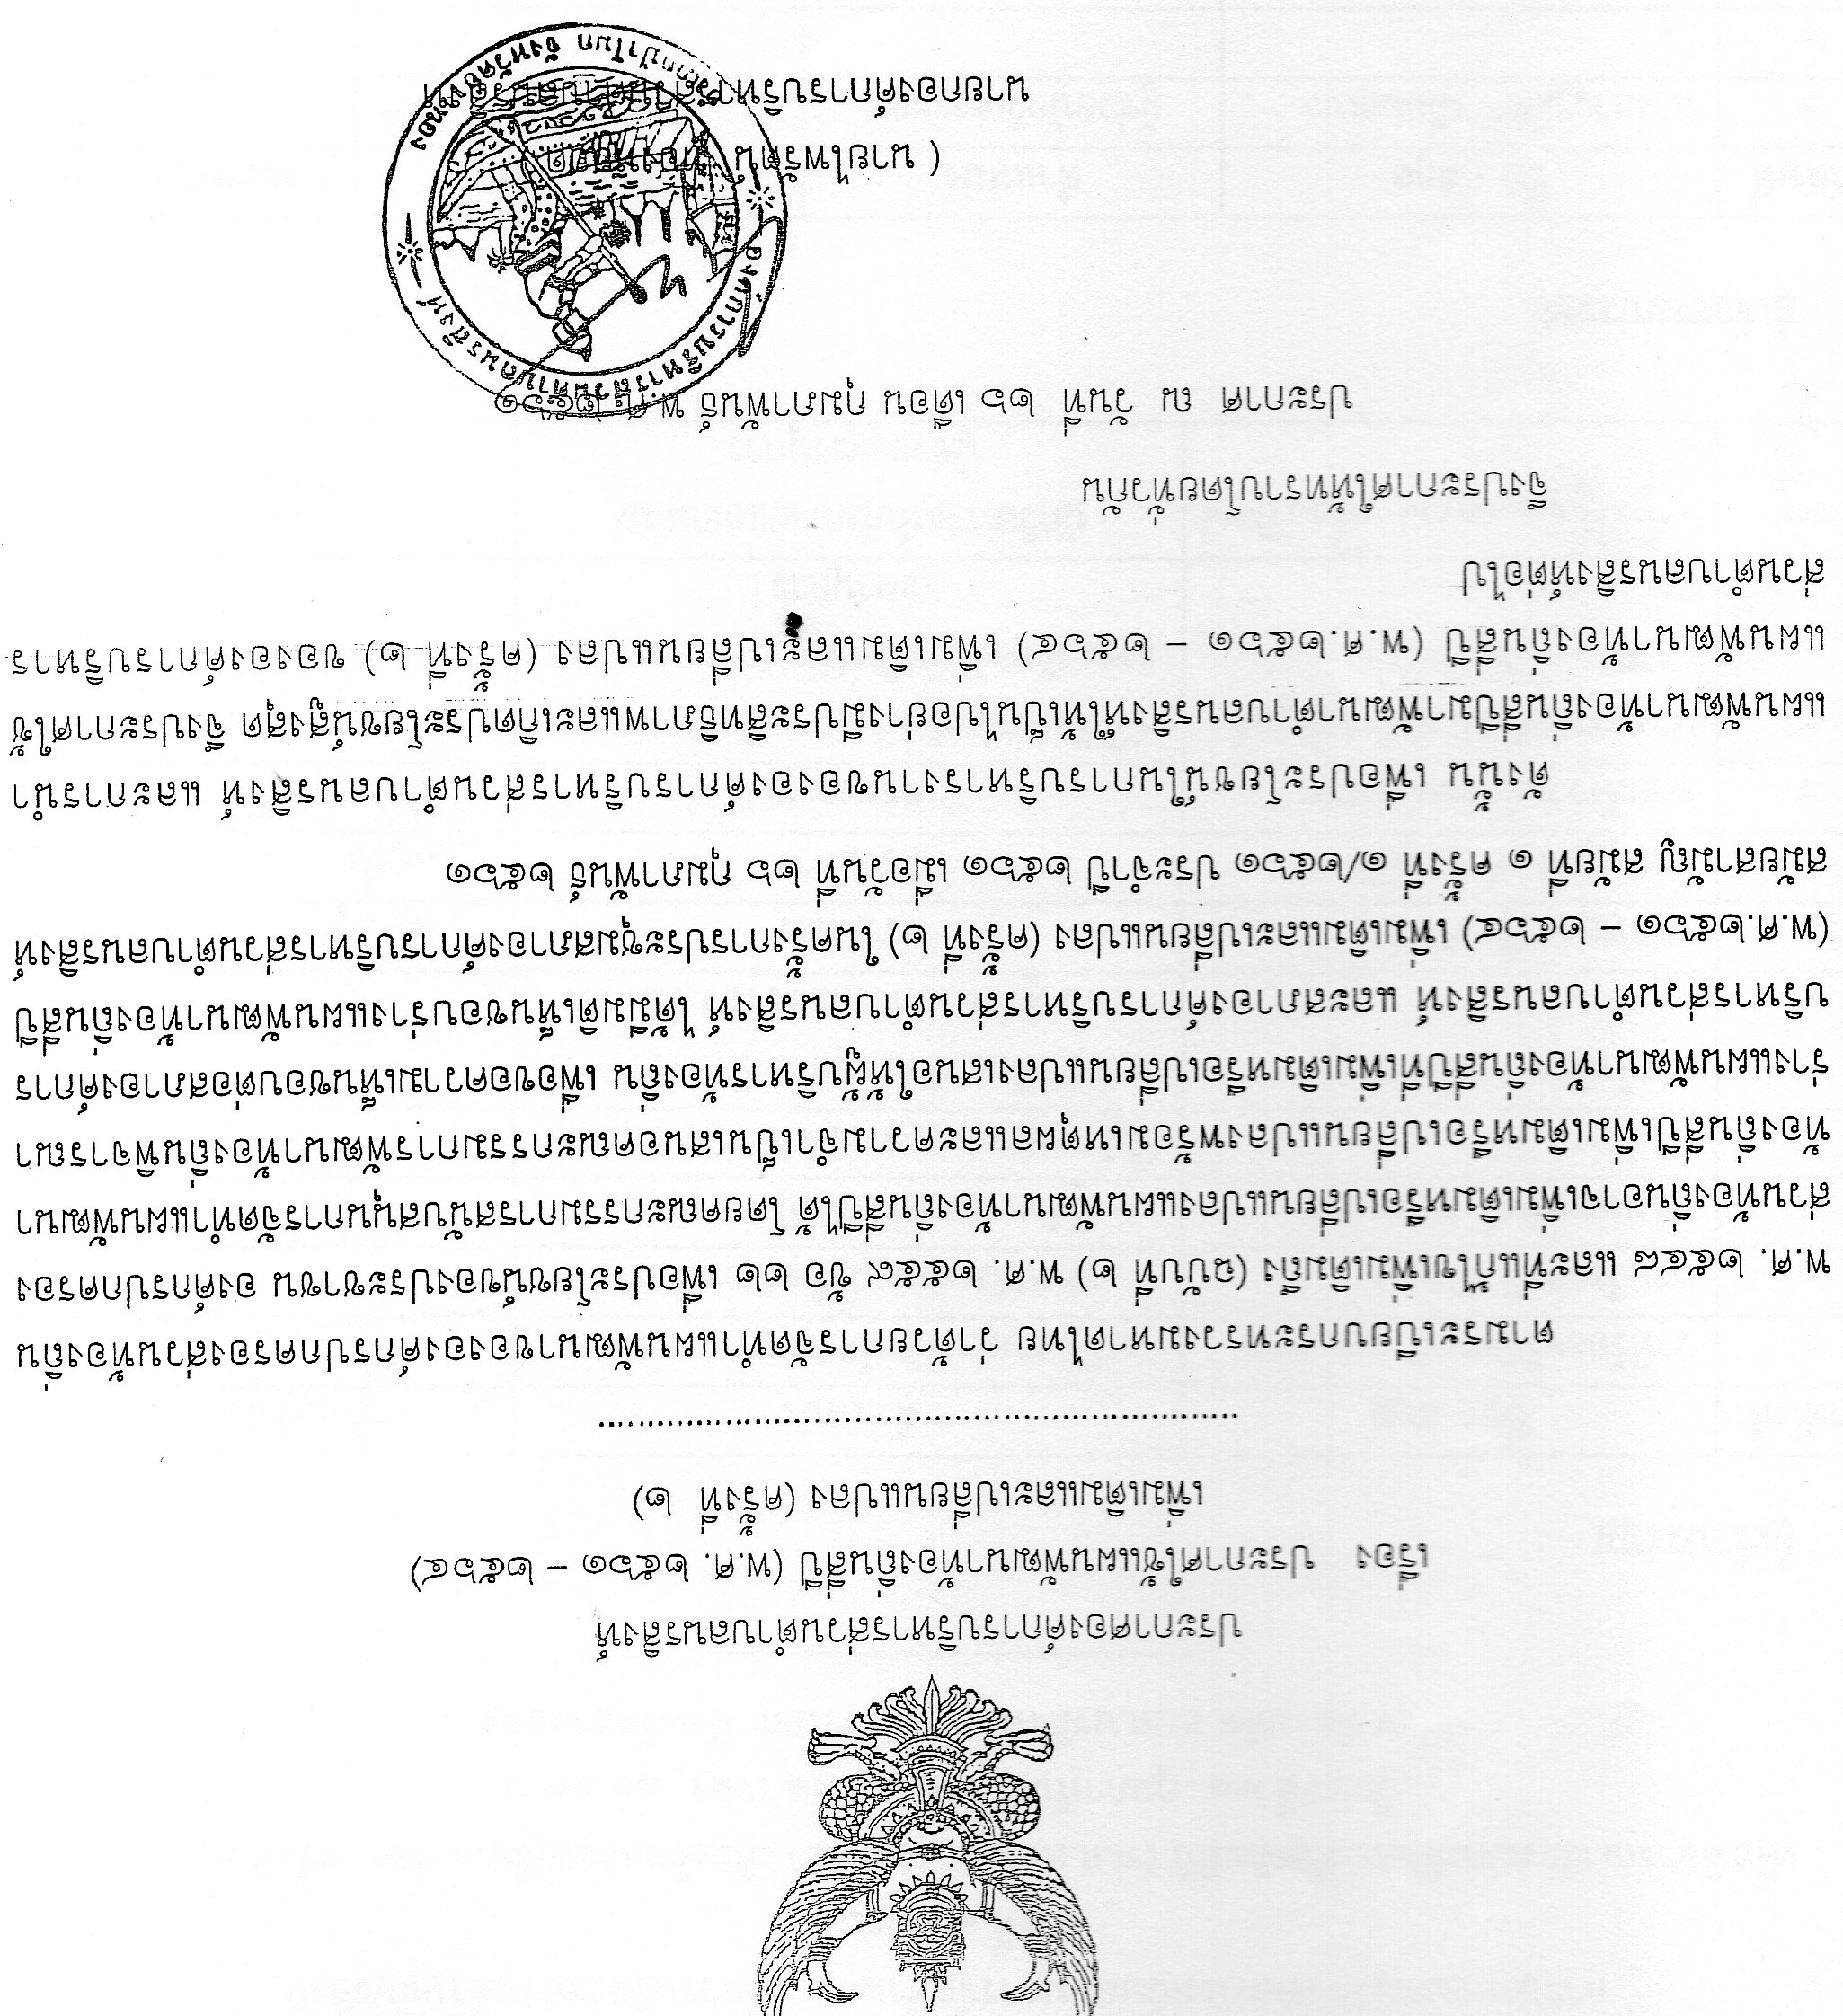 ประกาศองค์การบริหารส่วนตำบลนรสิงห์
เรื่อง ประกาศใช้แผนพัฒนาท้องถิ่นสี่ปี (พ.ศ. ๒๕๖๑ – ๒๕๖๔)
เพิ่มเติมและเปลี่ยนแปลง (ครั้งที่ ๒)
................................................................
ตามระเบียบกระทรวงมหาดไทย ว่าด้วยการจัดทำแผนพัฒนาขององค์กรปกครองส่วนท้องถิ่น
พ.ศ. ๒๕๔๘ และที่แก้ไขเพิ่มเติมถึง (ฉบับที่ ๒) พ.ศ. ๒๕๕๙ ข้อ ๒๒ เพื่อประโยชน์ของประชาชน องค์กรปกครอง
ส่วนท้องถิ่นอาจเพิ่มเติมหรือเปลี่ยนแปลงแผนพัฒนาท้องถิ่นสี่ปีได้ โดยคณะกรรมการสนับสนุนการจัดทำแผนพัฒนา
ท้องถิ่นสี่ปีเพิ่มเติมหรือเปลี่ยนแปลงพร้อมเหตุผลและความจำเป็นเสนอคณะกรรมการพัฒนาท้องถิ่นพิจารณา
ร่างแผนพัฒนาท้องถิ่นสี่ปีที่เพิ่มเติมหรือเปลี่ยนแปลงเสนอให้ผู้บริหารท้องถิ่น เพื่อขอความเห็นชอบต่อสภาองค์การ
บริหารส่วนตำบลนรสิงห์ และสภาองค์การบริหารส่วนตำบลนรสิงห์ ได้มีมติเห็นชอบร่างแผนพัฒนาท้องถิ่นสี่ปี
(พ.ศ.๒๕๖๑ – ๒๕๖๔) เพิ่มเติมและเปลี่ยนแปลง (ครั้งที่ ๒) ในคราวการประชุมสภาองค์การบริหารส่วนตำบลนรสิงห์
สมัยสามัญ สมัยที่ ๑ ครั้งที่ ๑/๒๕๖๑ ประจำปี ๒๕๖๑ เมื่อวันที่ ๒๖ กุมภาพันธ์ ๒๕๖๑
ดังนั้น เพื่อประโยชน์ในการบริหารงานขององค์การบริหารส่วนตำบลนรสิงห์ และการนำ
แผนพัฒนาท้องถิ่นสี่ปีมาพัฒนาตำบลนรสิงห์ให้เป็นไปอย่างมีประสิทธิภาพและเกิดประโยชน์สูงสุด จึงประกาศใช้
แผนพัฒนาท้องถิ่นสี่ปี (พ.ศ.๒๕๖๑ – ๒๕๖๔) เพิ่มเติมและเปลี่ยนแปลง (ครั้งที่ ๒) ขององค์การบริหาร
ส่วนตำบลนรสิงห์ต่อไป
จึงประกาศให้ทราบโดยทั่วกัน
ประกาศ ณ วันที่ ๒๖ เดือน กุมภาพันธ์ พ.ศ. ๒๕๖๑
( นายไพรัตน์
นายกองค์การบริหารส่วนตำบลนรสิงห์
องค์การบริหารส่วนตำบลนรสิงห์
อำเภอป่าโมก จังหวัดอ่างทอง